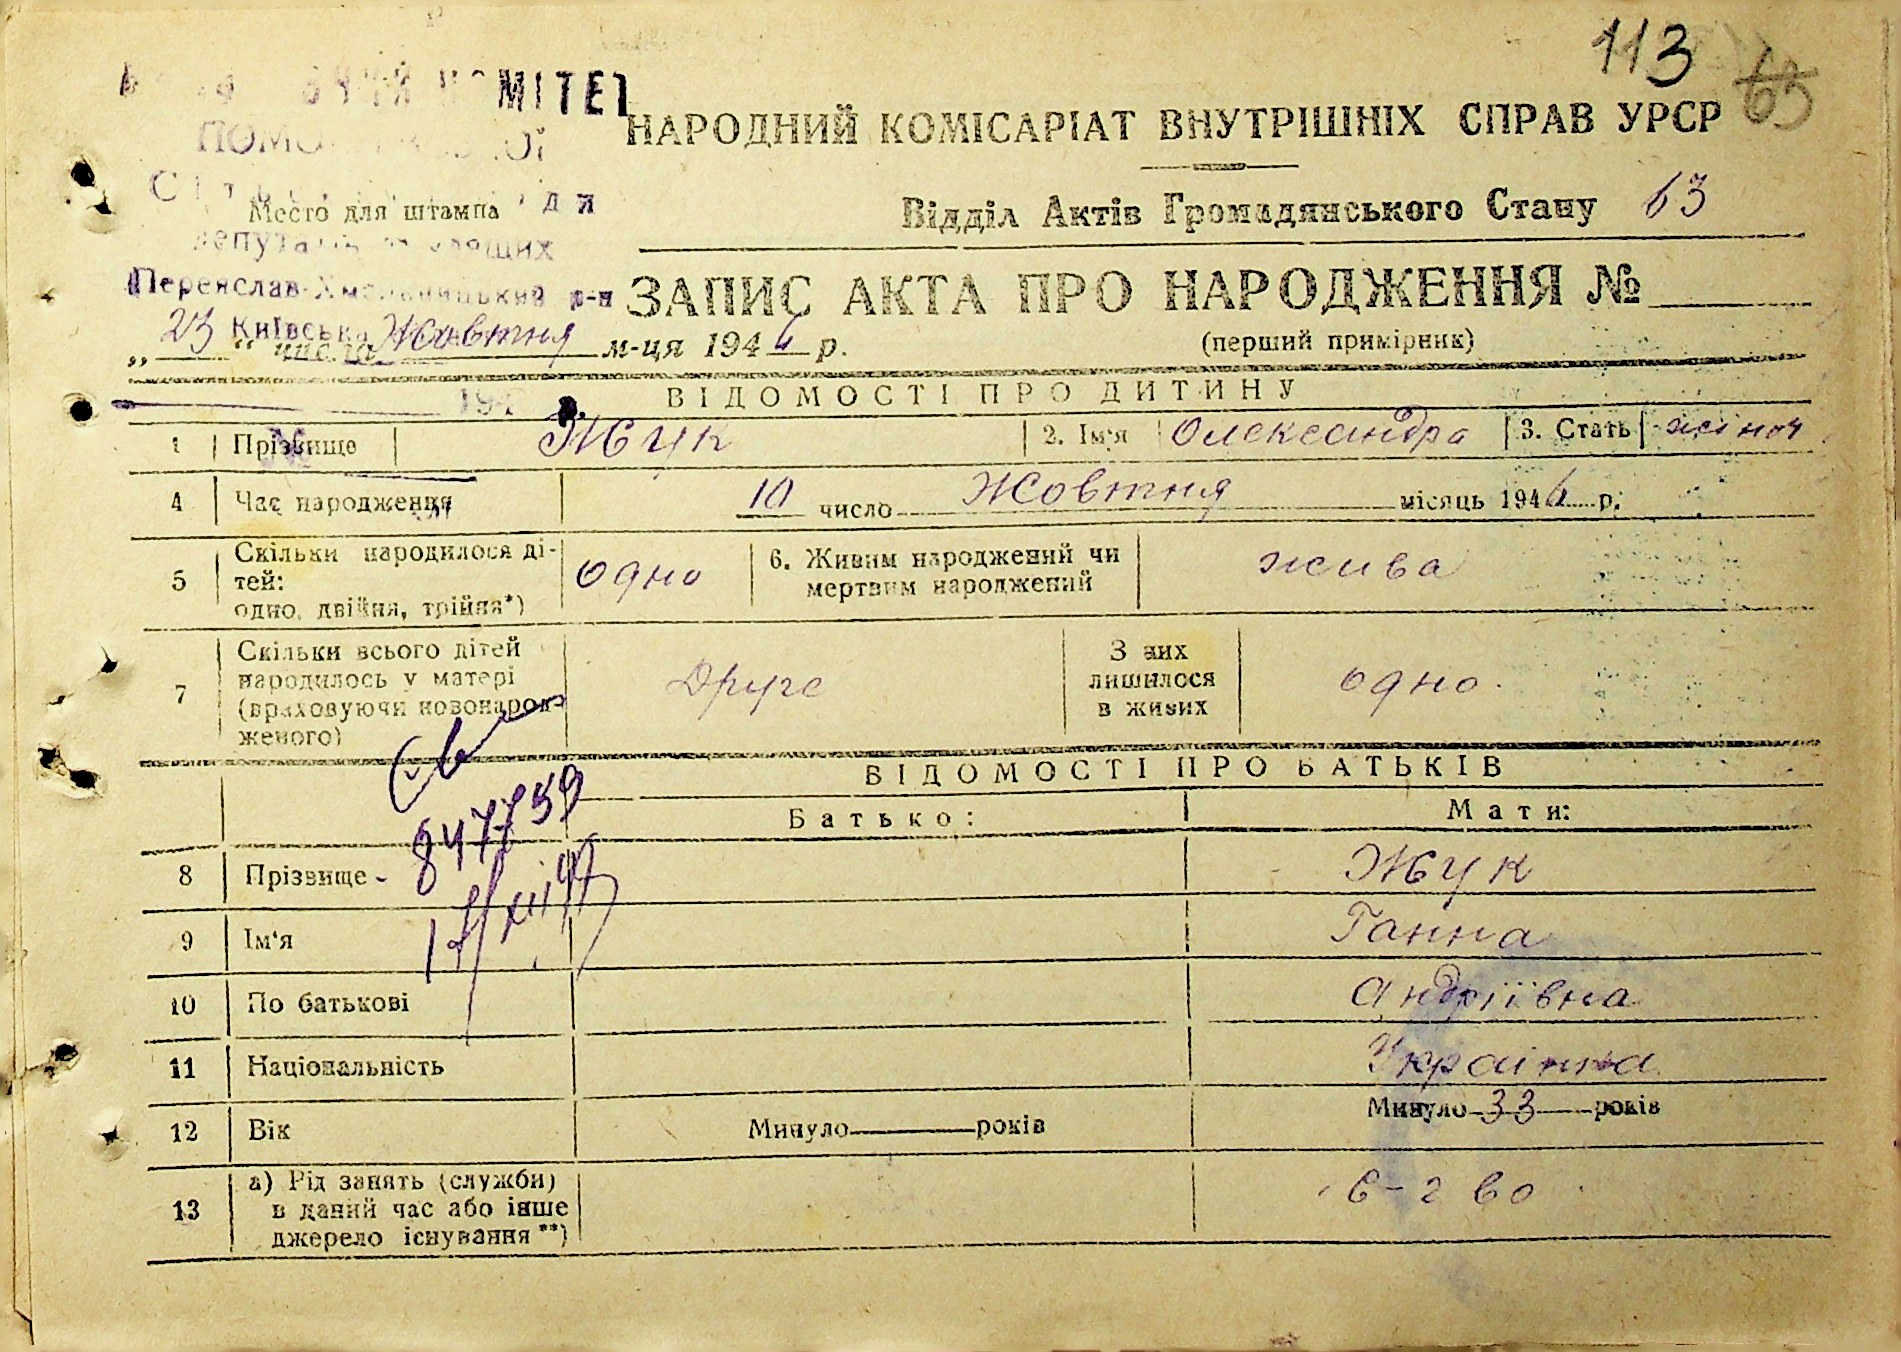 113
63
КОМІТЕТ
НАРОДНИЙ КОМІСАРІАТ ВНУТРІШНІХ СПРАВ УРСР
Место для штампа
Відділ Актів Громадянського Стану 63
депутатів
Переяслав-Хмельницький р-н
ЗАПИС АКТА ПРО НАРОДЖЕННЯ №
Київська
„ 23 “ числа Жовтня м-ця 1946 р.
(перший примірник)
194
ВІДОМОСТІ ПРО ДИТИНУ
1 Прізвище Жук 2. Ім'я Олександра 3. Стать жіноч
4 Час народження 10 число Жовтня місяць 1946 р.
5 Скільки народилося ді-
тей:
одно, двійня, трійня*) одно 6. Живим народжений чи
мертвим народжений жива
7 Скільки всього дітей
народилось у матері
(враховуючи новонарод-
женого) Друге З них
лишилося
в живих одно.
Св
847759
ВІДОМОСТІ ПРО БАТЬКІВ
Батько: Мати:
8 Прізвище Жук
9 Ім'я Ганна
10 По батькові Андріївна
11 Національність Українка
12 Вік Минуло років Минуло 33 років
13 а) Рід занять (служби)
в даний час або інше
джерело існування **) с-г во